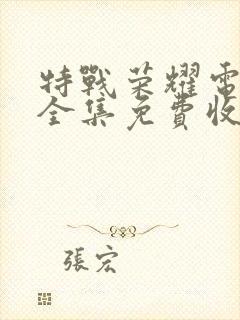 特戰荣耀電
全集免費收
張宏